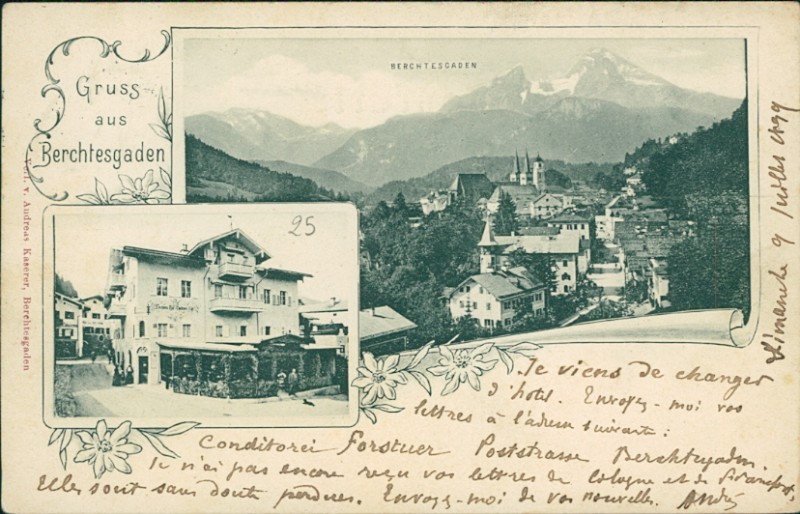 Gruss
aus
Berchtesgaden
BERCHTESGADEN
25
Verl. v. Andreas Kaserer, Berchtesgaden
Dimanche 9 Juillet 1899
Je viens de changer
d'hôtel. Envoyez-moi vos
lettres à l'adresse suivante:
Conditorei Forstner Poststrasse Berchtesgaden.
Je n'ai pas encore reçu vos lettres de Cologne et de Francfort,
Elles sont sans doute perdues. Envoyez-moi de vos nouvelles. André